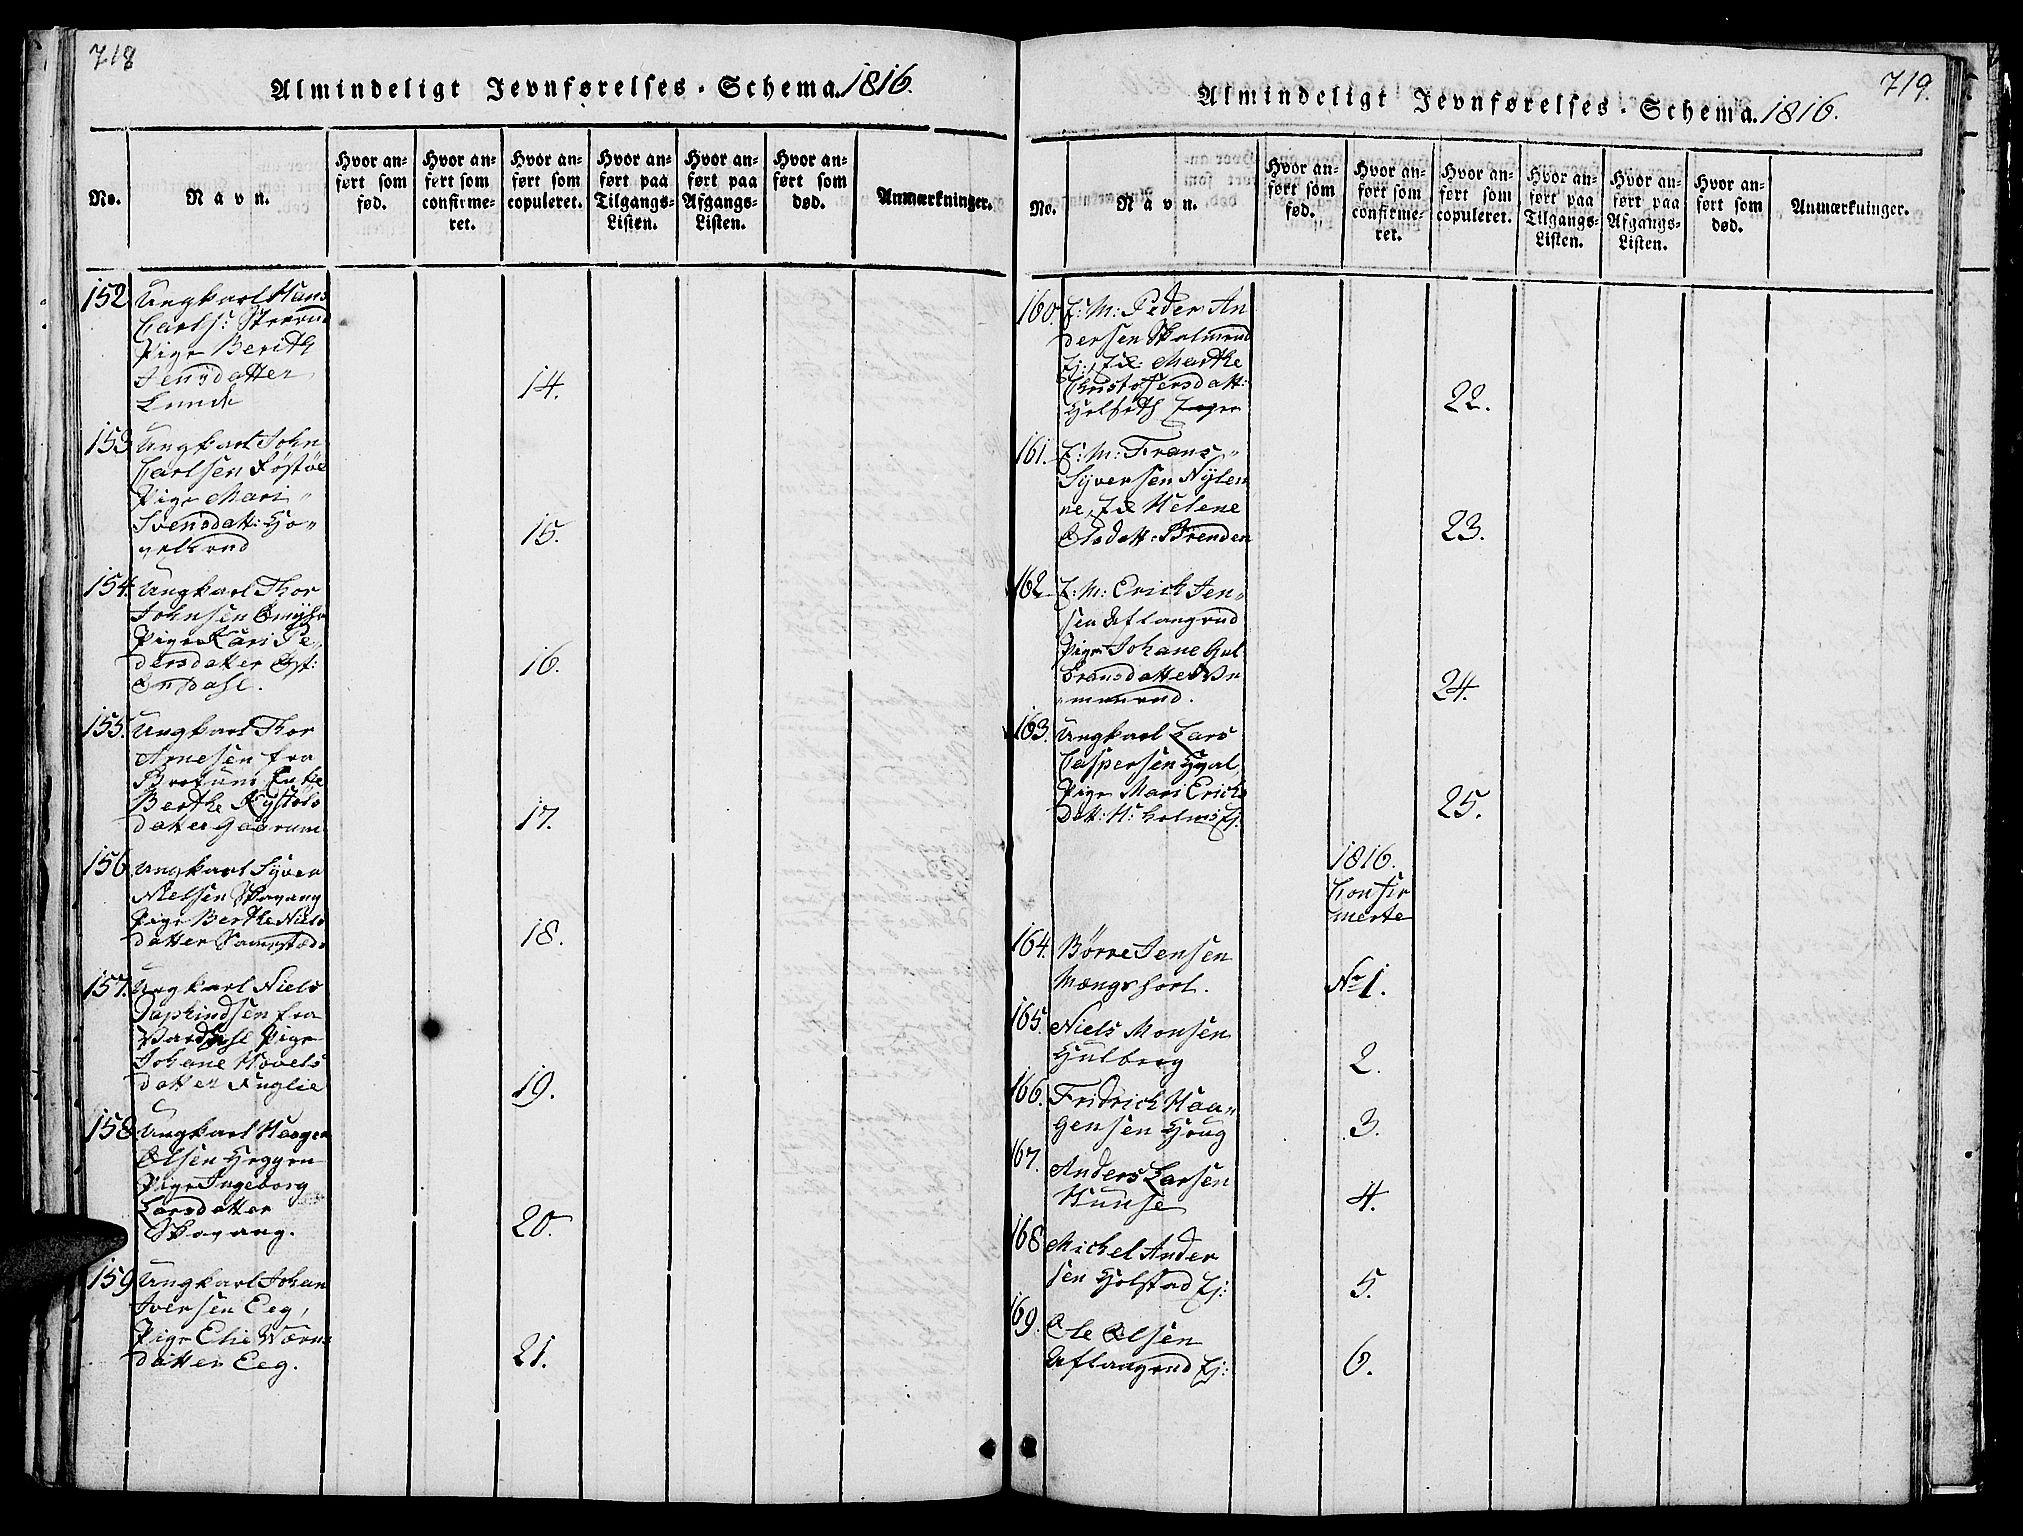 718
Almindeligt Jevnførelses-Schema. 1816.
No.
Navn.
Hvor anført som fød.
Hvor anført som confirmeret.
Hvor anført som copuleret.
Hvor anført paa Tilgangs-Listen.
Hvor anført paa Afgangs-Listen.
Hvor anført som død.
Anmærkninger.
152 Ungkarl Hans
Carls:
Pige Berith
Jensdatter
Lunde 14.
153 Ungkarl John
Carlsen
Pige Mari
Svensdatt: Ho„
velsrud 15.
154. Ungkarl Thor
Johnsen
Pige Kari Pe„
dersdatter
16.
155. Ungkarl Thor
Arnesen fra
Brotum Enke
Berthe
datter Gaarum 17.
156 Ungkarl Syver
Nielsen Skavang
Pige Berthe Niels
datter 18.
157. Ungkarl Niels
fra
Pige
Johane Hovels
datter Fuglie 19.
158 Ungkarl Haagen
Olsen Heggen
Pige Ingeborg
Larsdatter
Skavang. 20.
159 Ungkarl Johan
Iversen Eeg,
Pige Elie
datter Eeg. 21.
719.
Almindeligt Jevnførelses-Schema. 1816.
No.
Navn.
Hvor anført som fød.
Hvor anført som confirmeret.
Hvor anført som copuleret.
Hvor anført paa Tilgangs-Listen.
Hvor anført paa Afgangs-Listen.
Hvor anført som død.
Anmærkninger.
160. E: M: Peder An
dersen
Marthe
Christofersdatt:
22.
161. E: M: Frans
Syversen Nylen
ne, Helene
Olsdatt: Brenden 23.
162 E: M: Erich Jen„
sen Aflangrud
Pige Johane Gul
bransdatter
24.
163. Ungkarl Lars
Caspersen
Pige Mari Erichs
Datt: 25.
1816.
Confir
merte
164. Børre Jensen
Mængshoel. No 1.
165. Niels Monsen
Hulberg 2.
166. Fridrich Haa„
gensen Houg 3.
167. Anders Larsen
Hunse 4.
168 Michel Ander
sen Holstad Ej: 5.
169. Ole Olsen
Aflangrud Ej: 6.